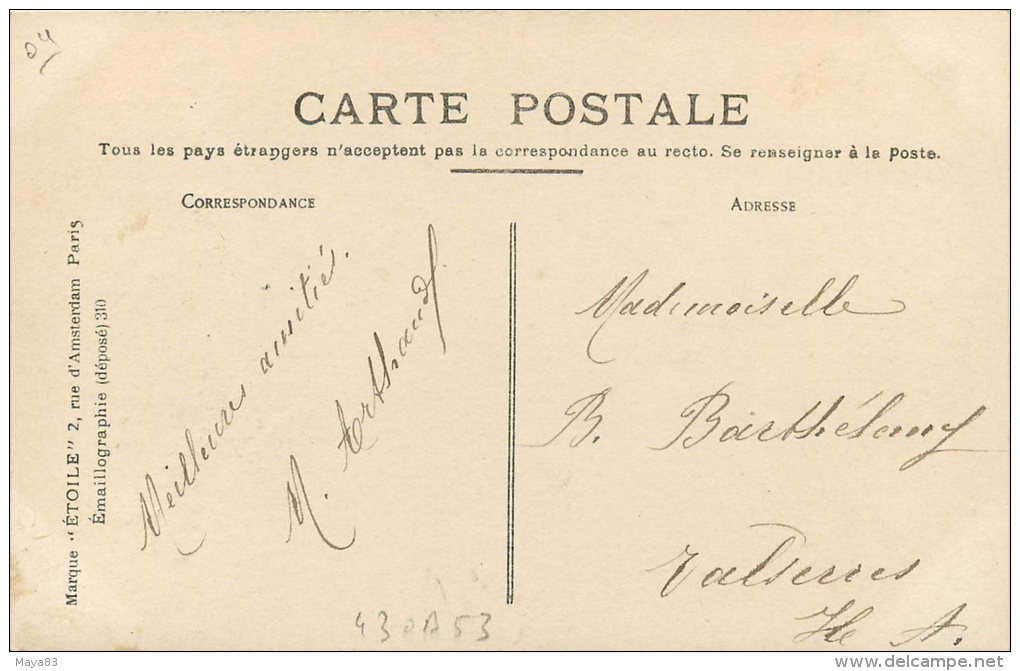 04
CARTE POSTALE
Tous les pays étrangers n'acceptent pas la correspondance au recto. Se renseigner à la Poste.
CORRESPONDANCE
ADRESSE
Marque "ÉTOILE" 2, rue d'Amsterdam Paris
Émaillographie (déposé) 310
Meilleures amitiés.
M. Arthaud
Mademoiselle
B. Barthélemy
Valserres
H A.
53
Maya83
delcampe.net